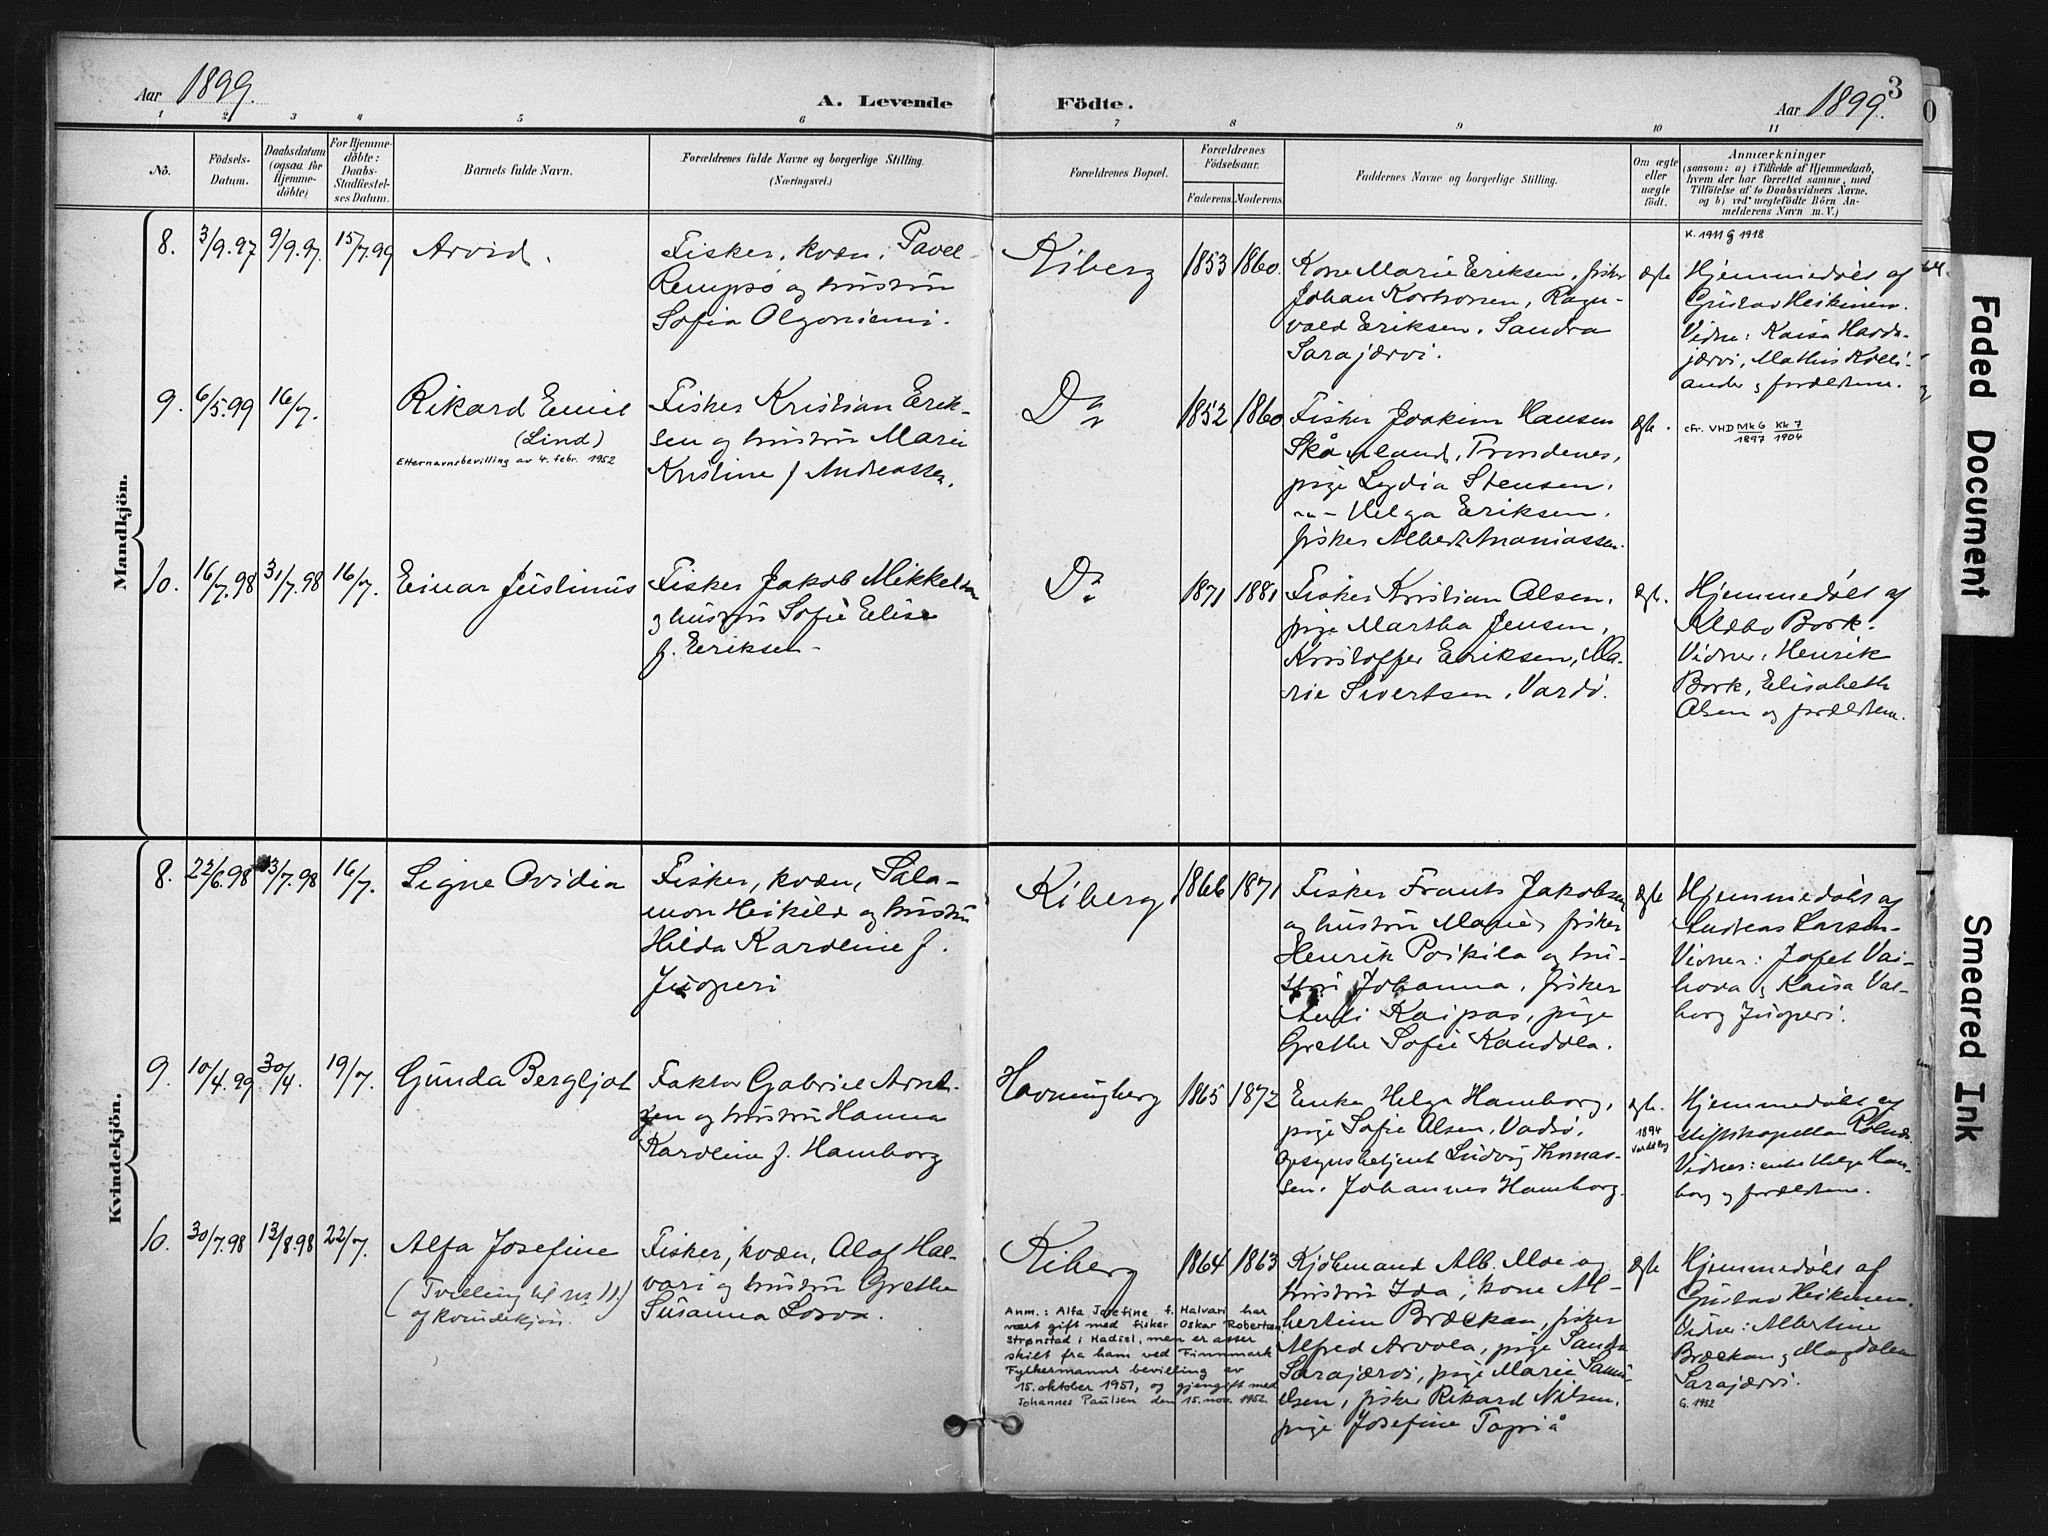 Aar 1899.
A. Levende Födte.
3
Aar 1899.
1 2 3 4 5 6 7 8 9 10 11
No.
Födsels-
Datum.
Daabsdatum
(ogsaa for
Hjemme-
döbte)
For Hjemme-
döbte:
Daabs-
Stadfæstel-
ses Datum.
Barnets fulde Navn.
Forældrenes fulde Navne og borgerlige Stilling.
(Næringsvei.)
Forældrenes Bopæl.
Forældrenes
Födselsaar.
Faderens. Moderens.
Faddernes Navne og borgerlige Stilling.
Om ægte
eller
uægte
født.
Anmærkninger
(saasom: a) i Tilfælde af Hjemmedaab,
hvem der har forrettet samme, med
Tilföielse af to Daabsvidners Navne,
og b) ved uægtefödte Börn An-
melderens Navn m. V.)
Mandkjön.
8. 3/9.97 9/9.97 15/7.99 Arvid.
Fisker, kvæn, Pavel
Rempsö og hustru
Sofia Olgoniemi.
Kiberg
1853 1860.
Kone Marie Eriksen, fisker
Johan Korhonen, Ragn-
vald Eriksen, Sandra
Sarajærvi.
ægte
K. 1911 G 1918
Hjemmedöbt af
Gustav Heikinen.
Vidne: Kaisa
jærvi, Mathis
ander og forældrene.
9. 6/5.99 16/7.
Rikard Emil
(Lind)
Etternavnsbevilling av 4. febr. 1952
Fisker Kristian Erik-
sen og hustru Marie
Kristine f. Andreassen.
Do
1852 1860
Fisker Joakim Hansen
Skånland, Trondenes,
pige Lydia Stensen,
-"- Helga Eriksen,
fisker Albert Ananiassen.
ægte.
cfr. VHD Mk 6 1897 Kk 7 1904
10. 16/7.98 31/7.98 16/7.
Einar Justinus
Fisker Jakob Mikkelsen
og hustru Sofie Elise
f. Eriksen.
Do
1871 1881
Fisker Kristian Olsen,
pige Martha Jensen,
Kristoffer Eriksen, Ma-
rie Sivertsen, Vardö.
ægte.
Hjemmedöbt af
Bork.
Vidner: Henrik
Bork, Elisabeth
Olsen og forældrene.
Kvindekjön.
8. 22/6.98 3/7.98 16/7.
Signe Ovidia
Fisker, kvæn, Sala-
mon Heikilä og hustru
Hilda Karoline f.
Juoperi
Kiberg
1866 1871
Fisker Frants Jakobsen
og hustru Marie, fisker
Henrik Poikila og hu-
stru Johanna, fisker
Kaipas, pige
Grethe Sofie Kandola.
ægte
Hjemmedöbt af
Andreas Larsen.
Vidner: Jafet Vai-
nova og Kaisa Val-
borg Juoperi.
9. 10/4.99 30/4. 19/7.
Gunda Bergljot
Faktor Gabriel Arnt-
zen og hustru Hanna
Karoline f. Hamborg
Havningberg
1865 1872
Enke Helga Hamborg,
pige Sofie Olsen, Vadsö,
Opsynsbetjent Ludvig Thomas-
sen, Johannes Hamborg.
ægte.
1894
Hjemmedöbt af
stiftskapellan
Vidner: enke Helga Ham-
borg og forældrene.
10. 30/7.98 13/8.98 22/7.
Alfa Josefine
(Tvilling til nr 11.)
af kvindekjön.
Fisker, kvæn, Olaf Hal-
vari og hustru Grethe
Susanna Lovva.
Kiberg
1864 1863
Anm.: Alfa Josefine f. Halvari har
vært gift med fisker Oskar Robertsen
Strønstad i Hadsel, men er atter
skilt fra ham ved Finnmark
Fylkesmanns bevilling av
15. oktober 1951, og gjengift med
Johannes Paulsen den 15. nov. 1952.
Kjöbmand Alb. Moe og
hustru Ida, kone Al-
bertine Brækkan, fisker
Alfred Arvola, pige Sandra
Sarajærvi, pige Marie Samu-
elsen, fisker Rikard Nilsen,
pige Josefine
ægte
Hjemmedöbt af
Gustav Heikinen.
Vidner: Albertine
Brækkan og Magdalena
Sarajærvi.
G. 1952
Faded Document
Smeared Ink